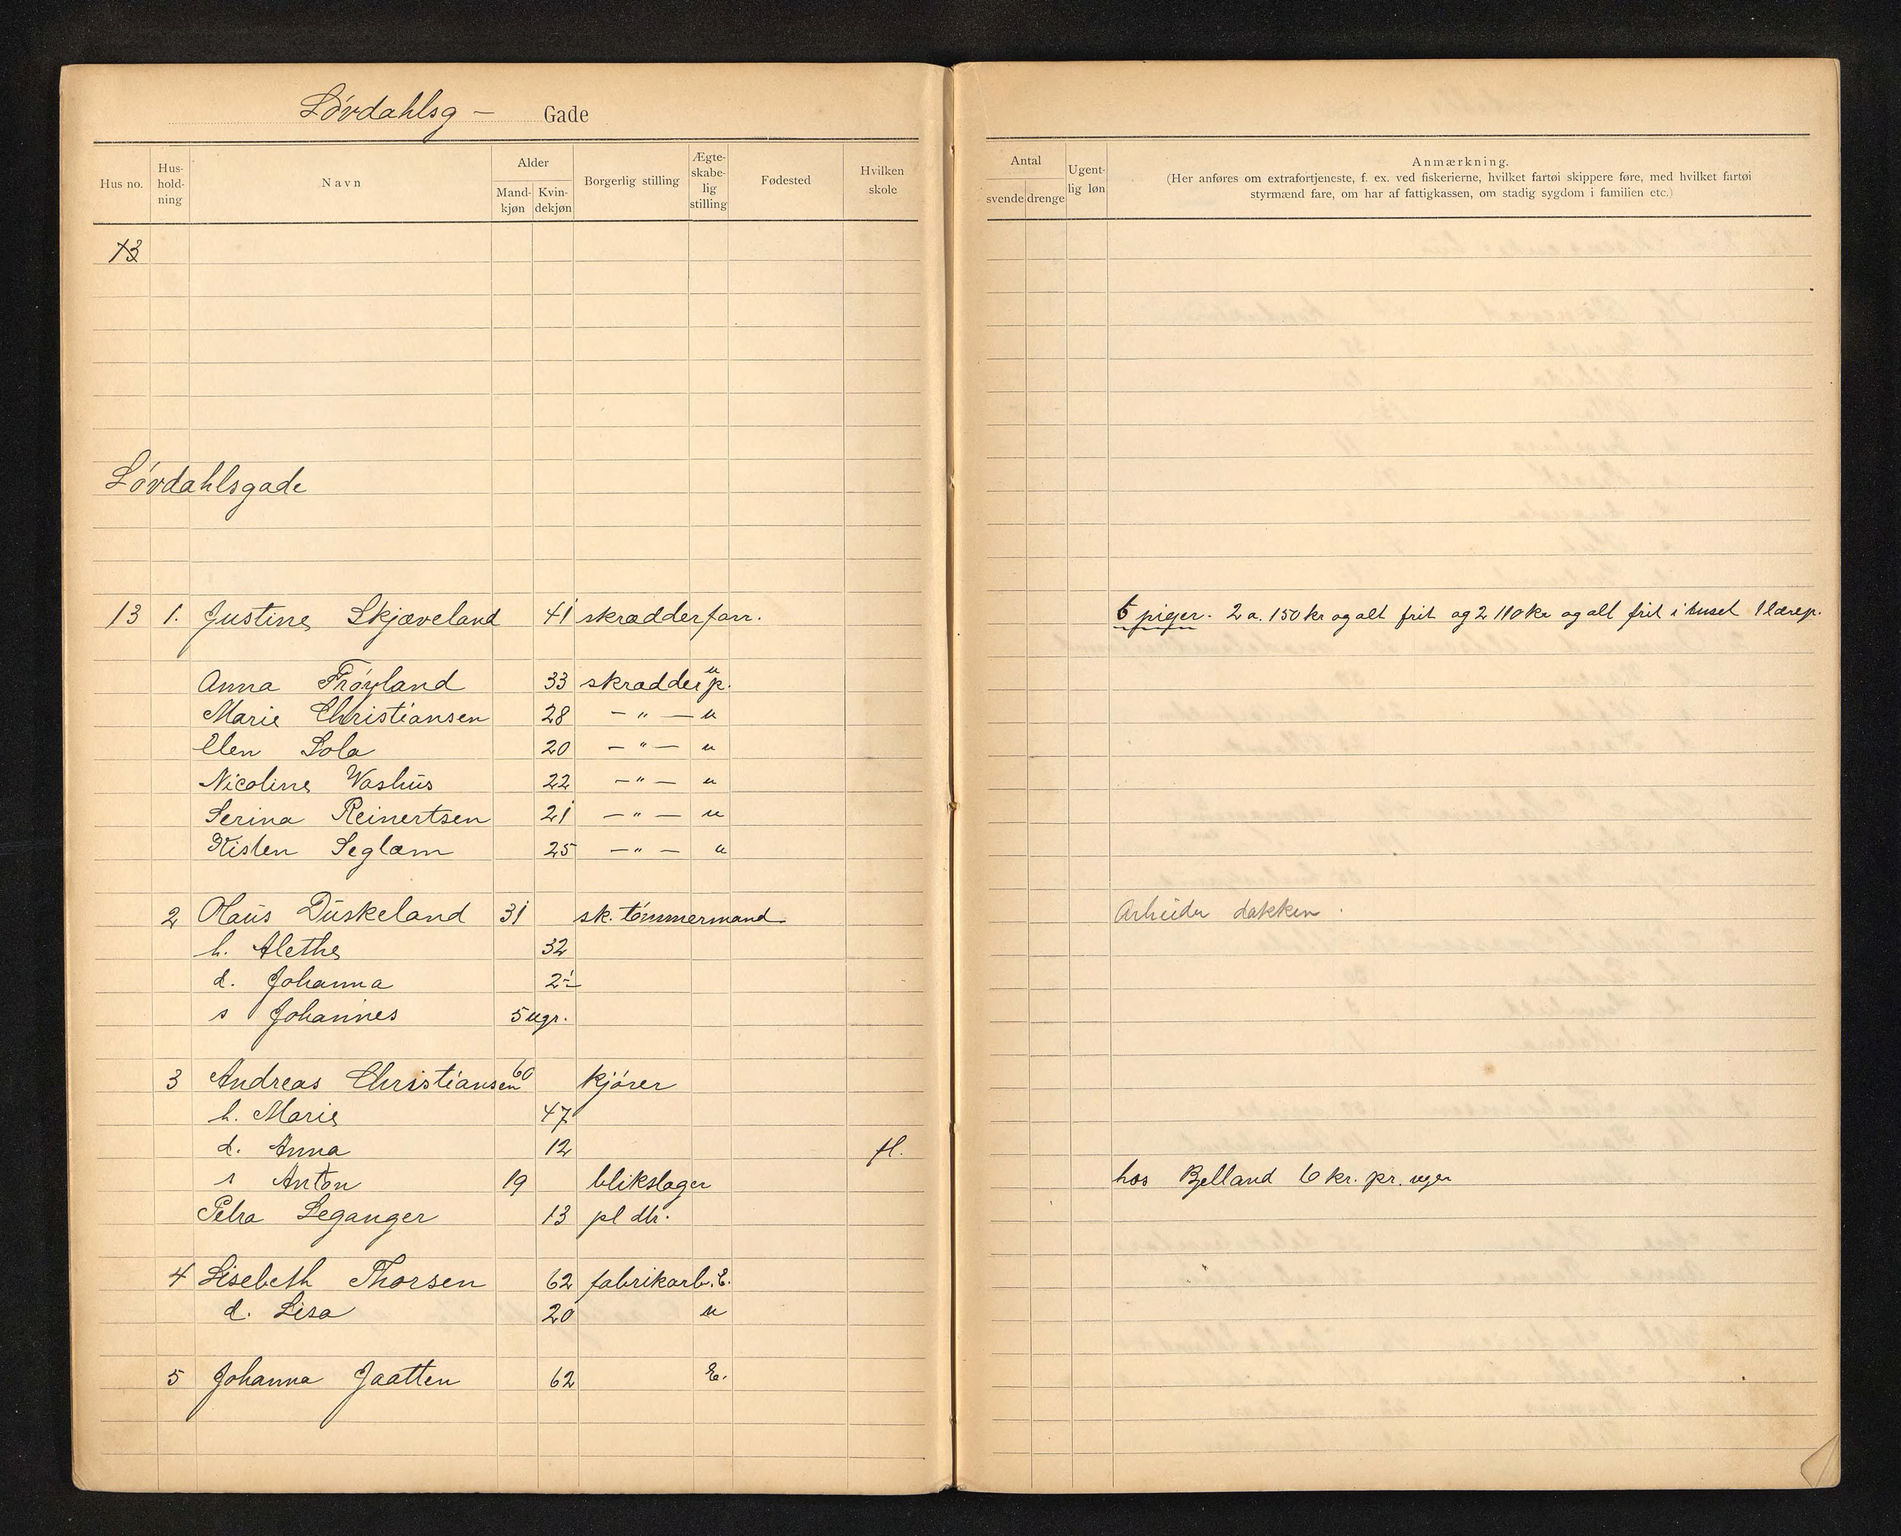 Lövdahlsg – Gade
Hus no. Hus-hold-ning Navn Alder Mand-kjøn Kvin-dekjøn Borgerlig stilling Ægte-skabe-lig stilling Fødested Hvilken skole
Antal svende drenge Ugent-lig løn Anmærkning.
(Her anføres om extrafortjeneste, f. ex. ved fiskerierne, hvilket fartøi skippere føre, med hvilket fartøi
styrmænd fare, om har af fattigkassen, om stadig sygdom i familien etc.)
13
Lövdahlsgade
13 1. Justine Skjæveland 41 skrædderforr. 6 piger. 2 a. 150 kr og alt frit og 2 110 kr og alt frit i huset 1 lærep.
Anna Fröyland 33 skrædderp. u
Marie Christiansen 28 – " – u
Elen Sola 20 – " – u
Nicoline Vashus 22 – " – u
Serina Reinertsen 21 – " – u
Kisten Seglem 25 – " – u
2 Olaus Duskeland 31 sk. tömmermand Arbeider dokken.
h. Alethe 32
d. Johanna 2½
s Johannes 5 ugr.
3 Andreas Christiansen 60 kjörer
h. Marie 47
d. Anna 12 fl.
s Anton 19 blikslager hos Bjelland 6 kr. pr. uger
Petra Leganger 13 pl dtr.
4 Lisebeth Thorsen 62 fabrikarb. E.
d. Lisa 20 u
5 Johanna Jaatten 62 E.